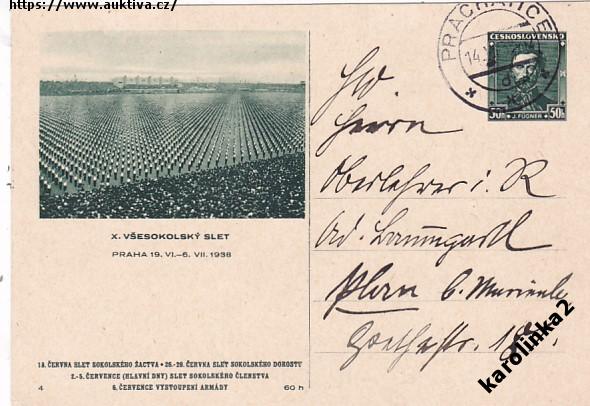 https://www.auktiva.cz/
PRACHATICE
14.
ČESKOSLOVENSKO
50h J. FÜGNER 50h
X. VŠESOKOLSKÝ SLET
PRAHA 19. VI.–6. VII. 1938
Herrn
Oberlehrer i. R
Ad. Baumgartl
Plan b. Marienb
Goethestr.
18. ČERVNA SLET SOKOLSKÉHO ŽACTVA • 25.-29. ČERVNA SLET SOKOLSKÉHO DOROSTU
2.-5. ČERVENCE (HLAVNÍ DNY) SLET SOKOLSKÉHO ČLENSTVA
6. ČERVENCE VYSTOUPENÍ ARMÁDY
4
60 h
karolinka2